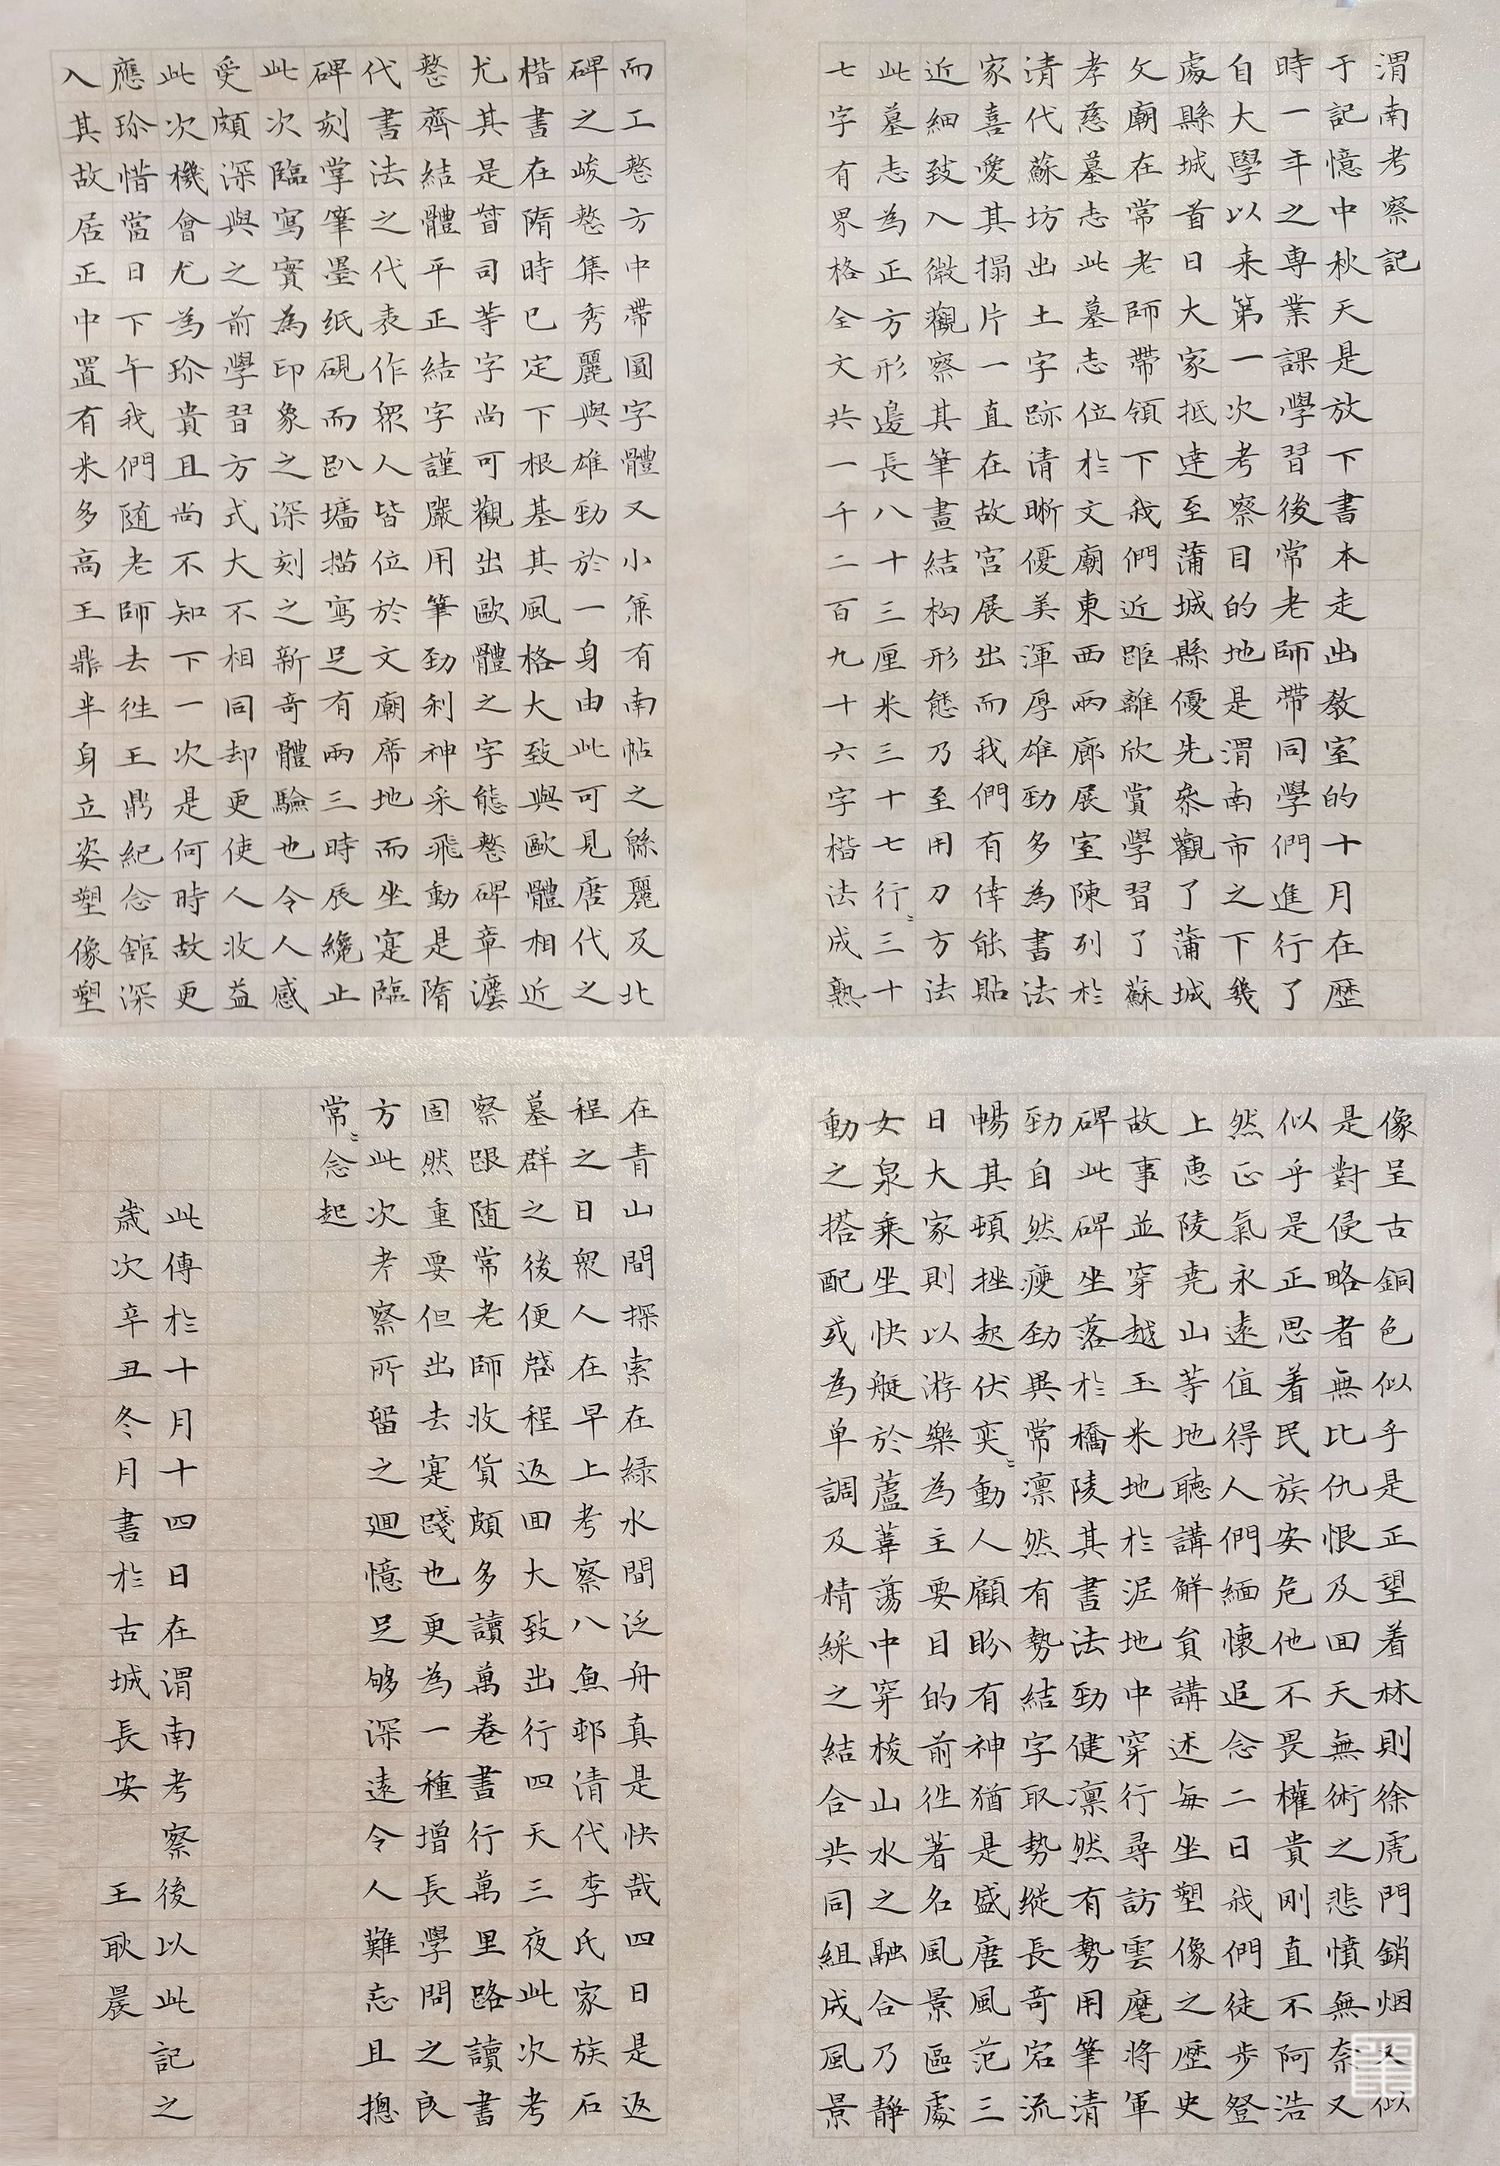 渭南考察記
于記憶中秋天是放下書本走出教室的十月在歷
時一年之專業課學習後常老師帶同學們進行了
自大學以来第一次考察目的地是渭南市之下幾
處縣城首日大家抵達至蒲城縣優先參觀了蒲城
文廟在常老師帶領下我們近距離欣賞學習了蘇
孝慈墓志此墓志位於文廟東西兩廊展室陳列於
清代蘇坊出土字跡清晰優美渾厚雄勁多為書法
家喜愛其搨片一直在故宮展出而我們有倖能貼
近細致入微觀察其筆畫結构形態乃至用刀方法
此墓志為正方形邊長八十三厘米三十七行〻三十
七字有界格全文共一千二百九十六字楷法成熟
而工整方中帶圓字體又小兼有南帖之緜麗及北
碑之峻整集秀麗與雄勁於一身由此可見唐代之
楷書在隋時已定下根基其風格大致與歐體相近
尤其是晉司等字尚可觀出歐體之字態整碑章灋
整齊結體平正結字謹嚴用筆勁利神采飛動是隋
代書法之代表作眾人皆位於文廟席地而坐寔臨
碑刻掌筆墨纸硯而趴壩描寫足有兩三時辰纔止
此次臨寫實為印象之深刻之新奇體驗也令人感
受頗深與之前學習方式大不相同却更使人收益
此次機會尤為珎貴且尚不知下一次是何時故更
應珎惜當日下午我們随老師去徃王鼎紀念舘深
入其故居正中置有米多高王鼎半身立姿塑像塑
像呈古銅色似乎是正望着林則徐虎門銷烟又似
是對侵略者無比仇恨及回天無術之悲憤無奈又
似乎是正思着民族安危他不畏權貴刚直不阿浩
然正氣永遠值得人們緬懷追念二日我們徒步登
上惠陵堯山等地聽講解貟講述每坐塑像之歷史
故事並穿越玉米地於泥地中穿行尋訪雲麾將軍
碑此碑坐落於橋陵其書法勁健凛然有勢用筆清
勁自然瘦勁異常凛然有勢結字取勢縱長奇宕流
暢其頓挫起伏奕〻動人顧盼有神猶是盛唐風范三
日大家則以游樂為主要目的前徃著名風景區處
女泉乘坐快艇於蘆葦蕩中穿梭山水之融合乃靜
動之搭配或為单調及精綵之結合共同組成風景
在青山間探索在緑水間泛舟真是快哉四日是返
程之日眾人在早上考察八魚邨清代李氏家族石
墓群之後便啟程返回大致出行四天三夜此次考
察跟随常老師收貨頗多讀萬卷書行萬里路讀書
固然重要但出去寔踐也更為一種增長學問之良
方此次考察所留之迴憶足够深遠令人難忘且摠
常〻念起
此傳於十月十四日在渭南考察後以此記之
歲次辛丑冬月書於古城長安 王耿晨